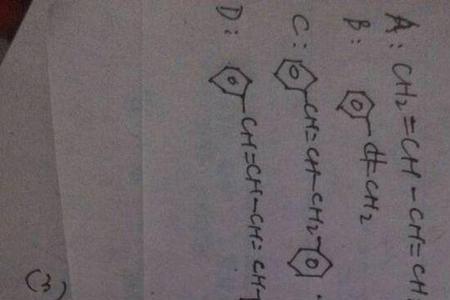 A: CH2=CH-CH=CH
B: CH=CH2
C: CH=CH-CH2-
D: CH=CH-CH=CH-